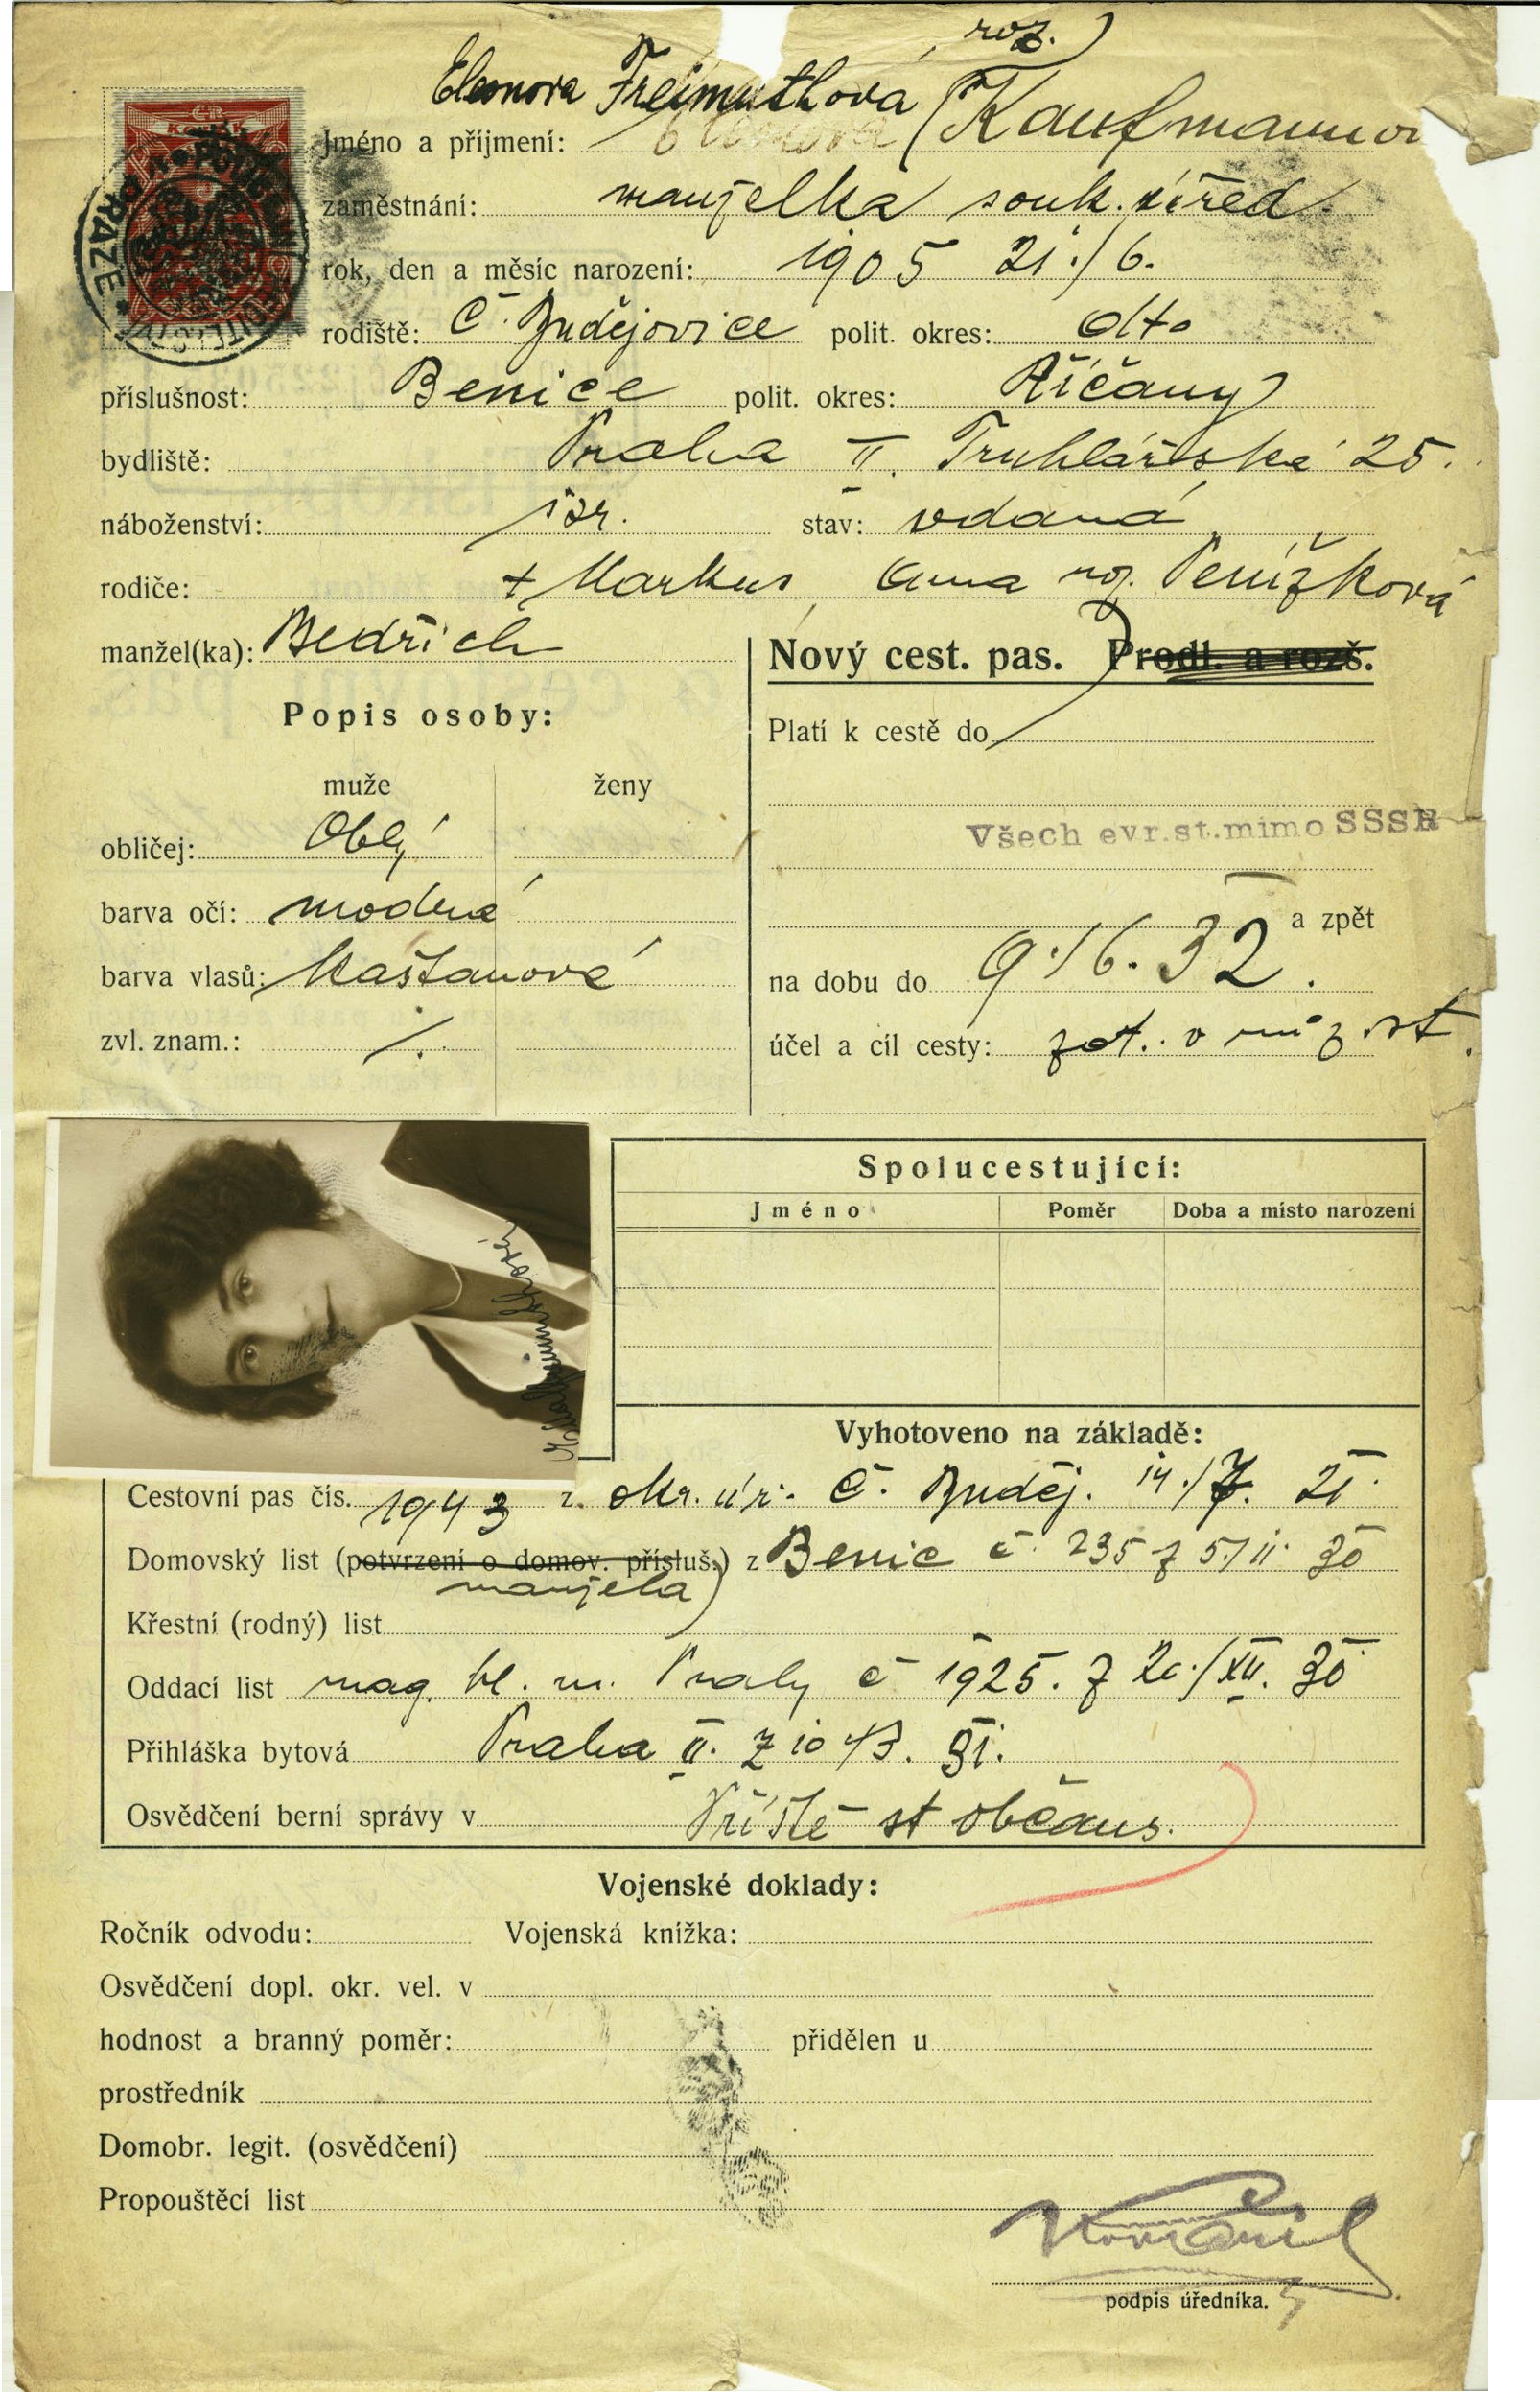 roz.)
Eleonora Freimuthová (Kaufmannov
Jméno a příjmení:
zaměstnání: manželka souk. úřed.
rok, den a měsíc narození: 1905 21./6.
rodiště: Č. Budějovice polit. okres: dtto
příslušnost: Benice polit. okres: Říčany
bydliště: Praha II. Truhlářská 25.
náboženství: isr. stav: vdaná
rodiče: + Markus, Anna roz. Penížková
manžel(ka): Bedřich
Nový cest. pas. Prodl. a rozš.
Popis osoby:
Platí k cestě do
muže ženy
obličej: Oblý
Všech evr.st.mimo SSSR
barva očí: modré
a zpět
barva vlasů: Kaštanové
na dobu do 9./6. 32.
zvl. znam.: /.
účel a cíl cesty: zot. v růz. st.
Spolucestující:
Jméno Poměr Doba a místo narození
Vyhotoveno na základě:
Cestovní pas čís. 1943 z. okr. úř. Č. Buděj. 14./7. 21.
Domovský list (potvrzení o domov. přísluš.) z Benic č. 235 z 5./11. 30
manžela)
Křestní (rodný) list
Oddací list mag. hl. m. Prahy č 1925. z 20./XII. 30
Přihláška bytová Praha II. z 10 /3. 31.
Osvědčení berní správy v Příště st občans.
Vojenské doklady:
Ročník odvodu: Vojenská knížka:
Osvědčení dopl. okr. vel. v
hodnost a branný poměr: přidělen u
prostředník
Domobr. legit. (osvědčení)
Propouštěcí list
podpis úředníka.